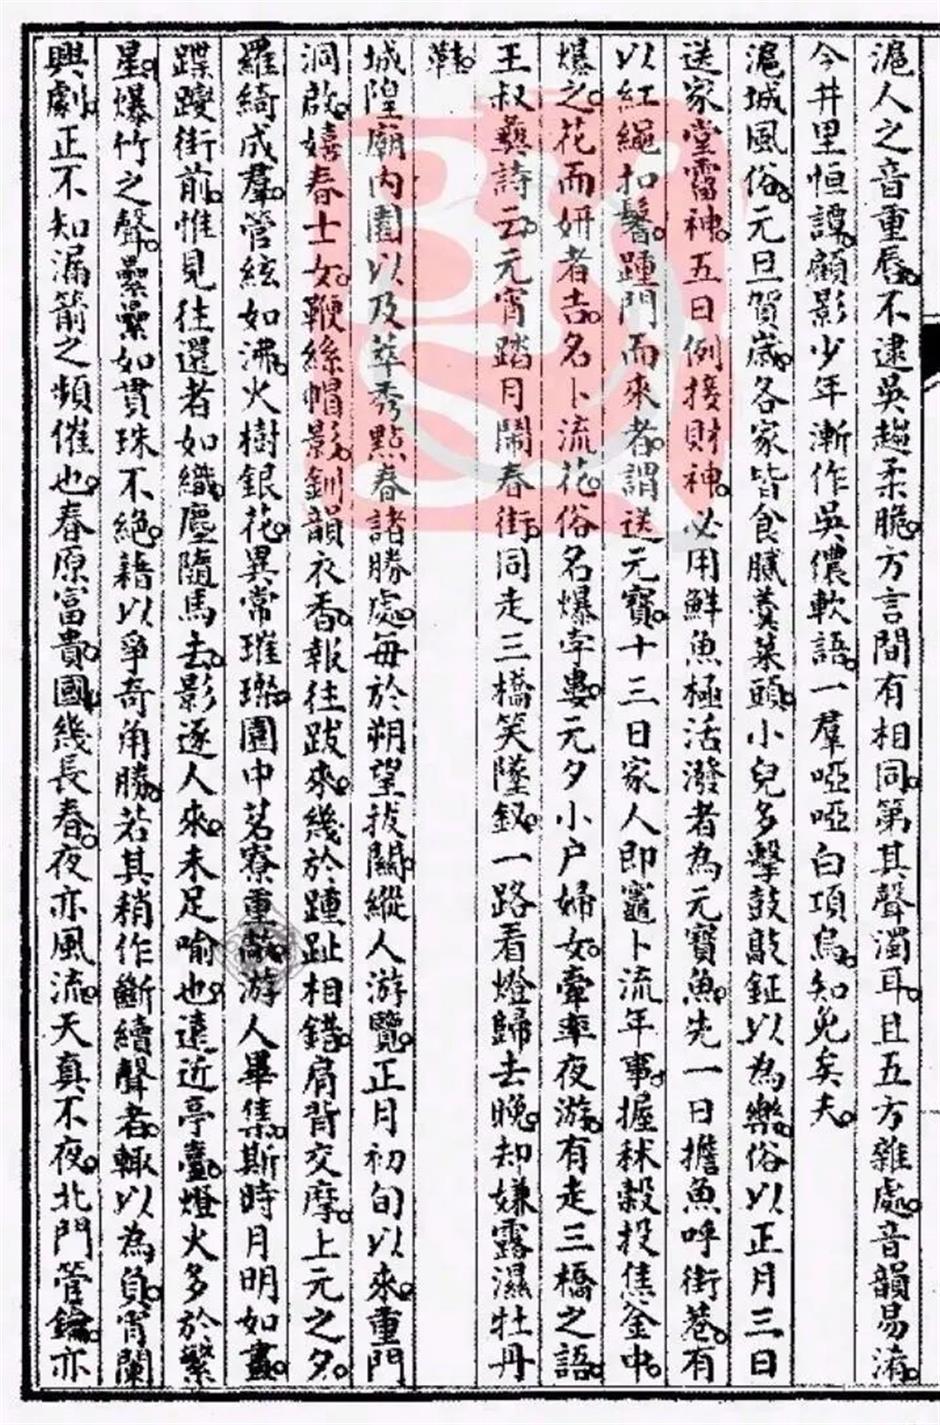 滬人之音重唇不逮吳趨柔脆方言間有相同第其聲濁耳且五方雜處音韻易淆
今井里恒譚顧影少年漸作吳儂軟語一羣啞啞白項烏知免矣夫
滬城風俗元旦賀歲各家皆食膩羹菜頭小兒多擊鼓敲鉦以為樂俗以正月三日
送家堂雷神五日例接財神必用鮮魚極活潑者為元寶魚先一日擔魚呼街巷有
以紅繩扣鬐踵門而來者謂送元寶十三日家人即竈卜流年事握秫穀投焦釜中
爆之花而妍者吉名卜流花俗名爆孛婁元夕小户婦女牽率夜游有走三橋之語
王叔彝詩云元宵踏月鬧春街同走三橋笑墜釵一路看燈歸去晚却嫌露濕牡丹
鞋
城隍廟內園以及萃秀點春諸勝處每於朔望拔關縱人游覽正月初旬以來重門
洞啟嬉春士女鞭絲帽影釧韻衣香報往跋來幾於踵趾相錯肩背交摩上元之夕
羅綺成羣管絃如沸火樹銀花異常璀璨園中茗寮重敞游人畢集斯時月明如晝
蹀躞街前惟見往還者如織塵隨馬去影逐人來未足喻也遠近亭臺燈火多於繁
星爆竹之聲纍纍如貫珠不絕藉以爭奇角勝若其稍作斷續聲者輒以為負宵闌
興劇正不知漏箭之頻催也春原富貴國幾長春夜亦風流天真不夜北門管鑰亦